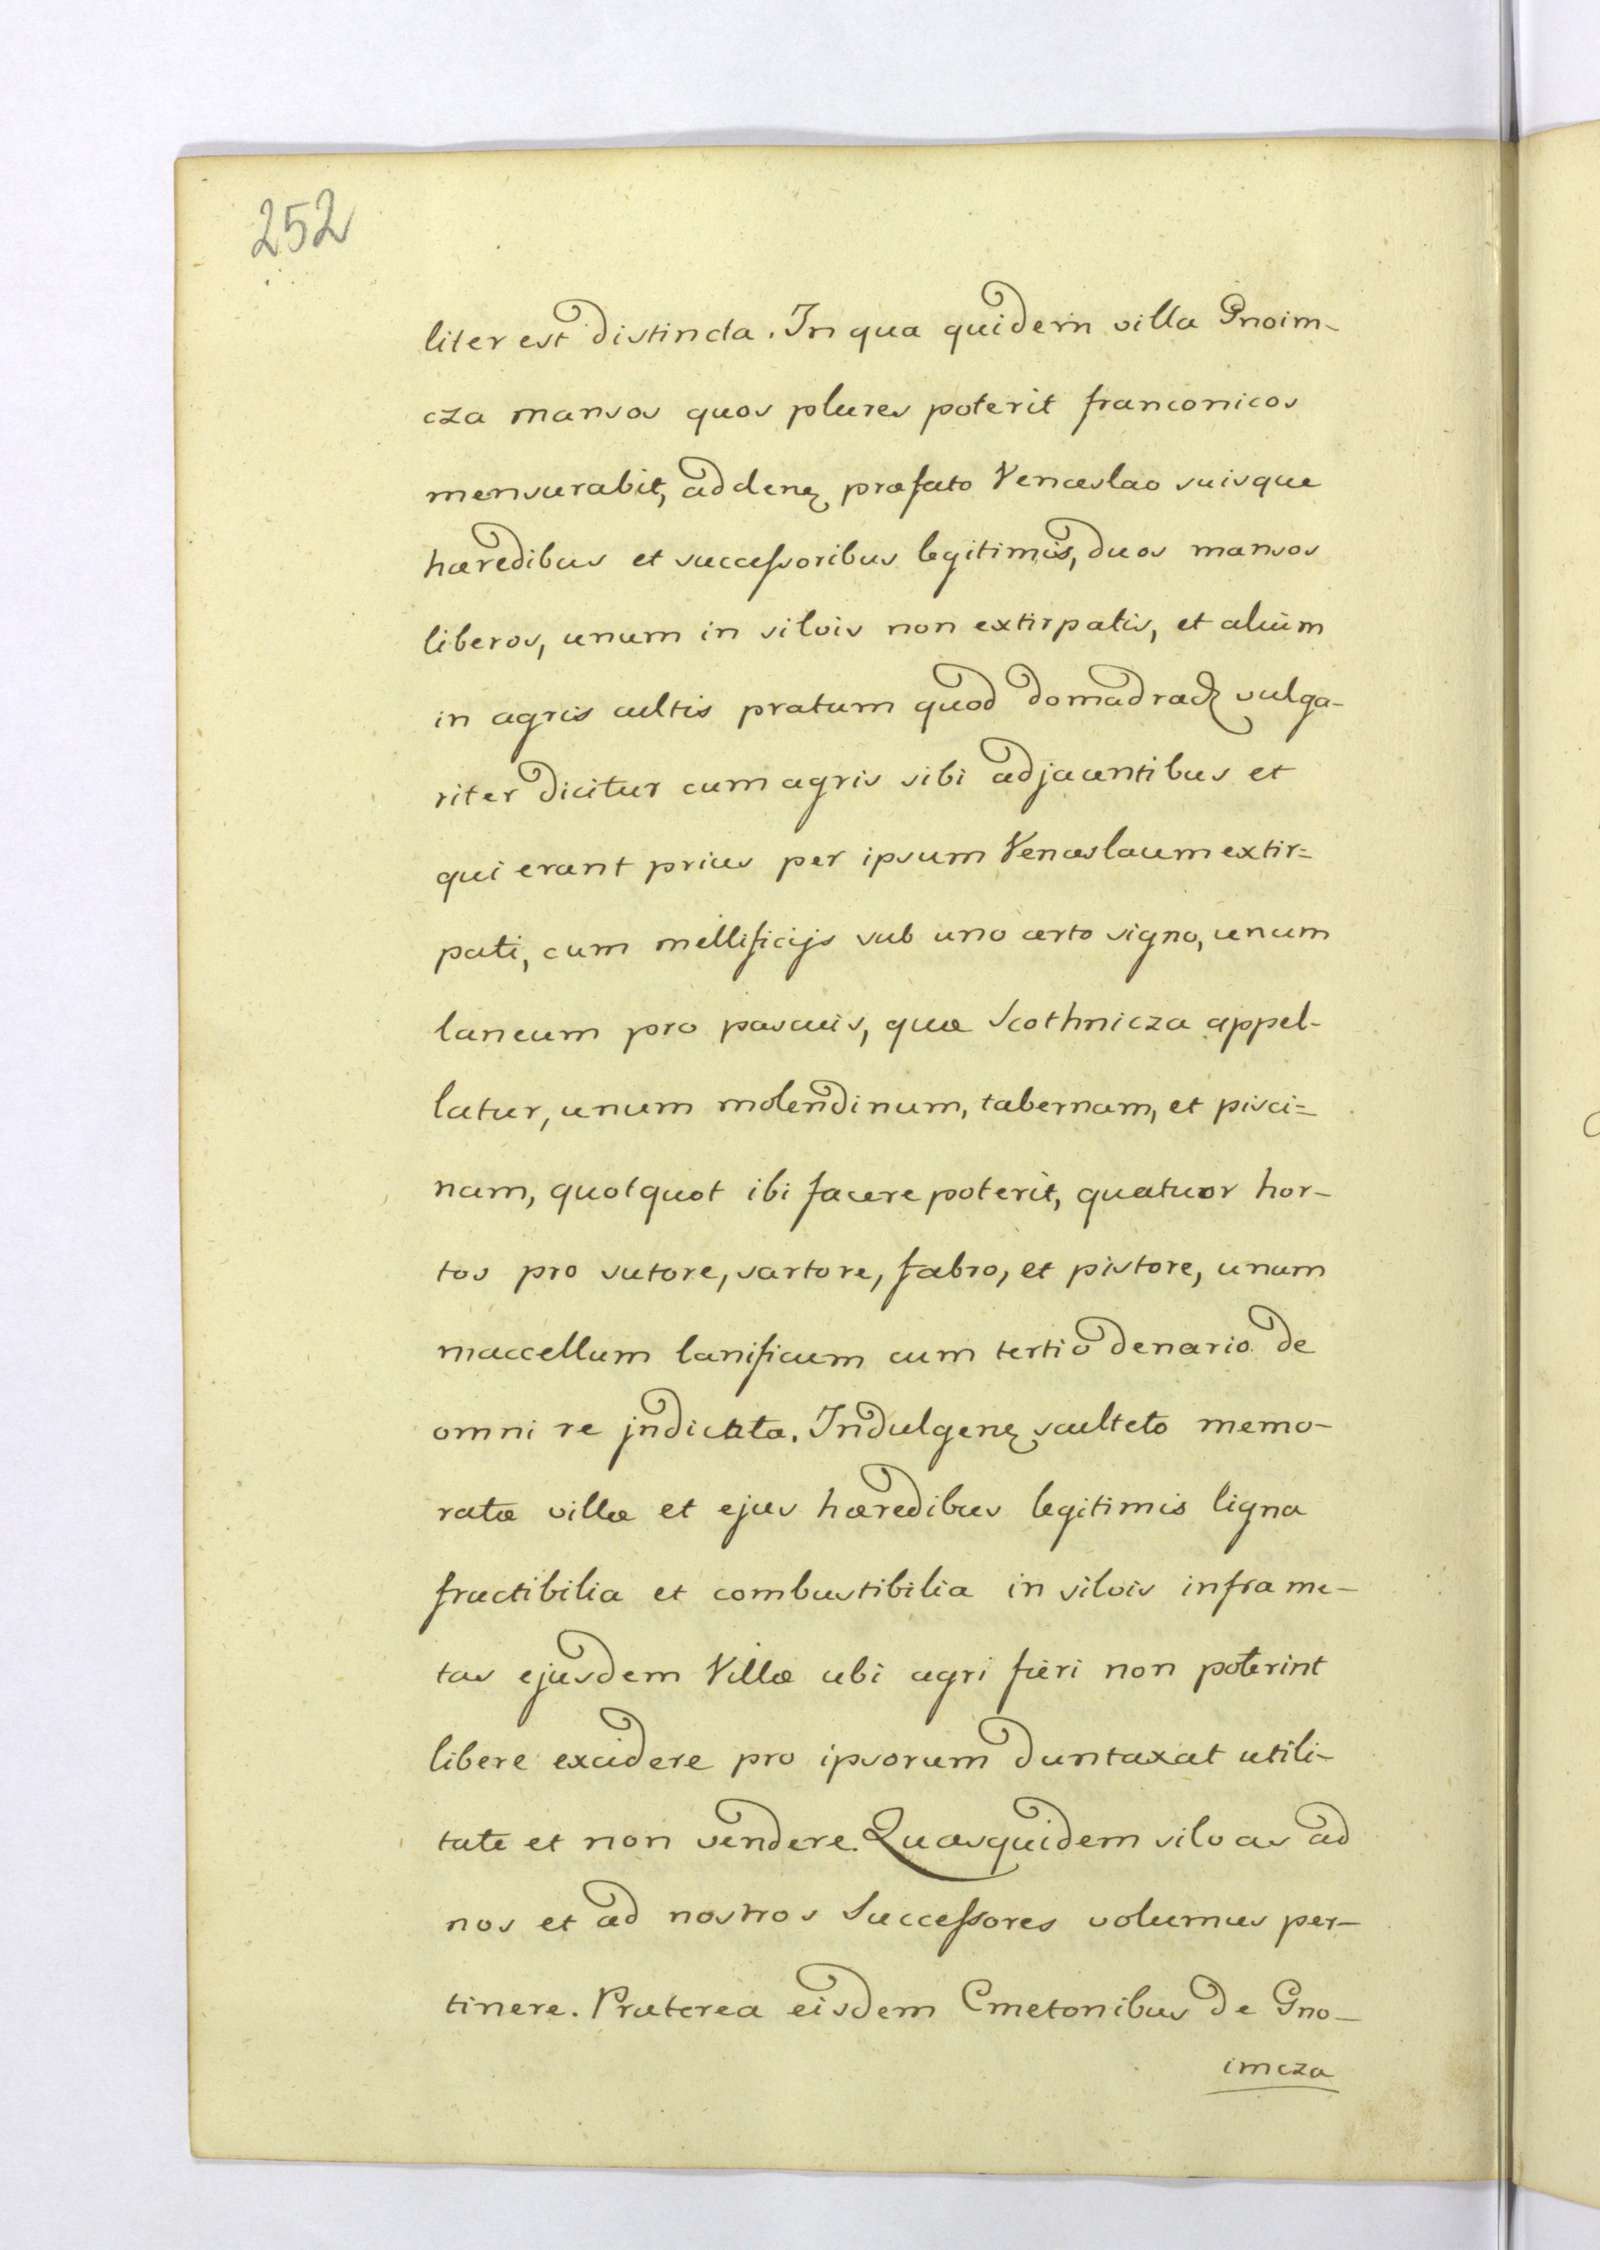 252
liter est distincta. In qua quidem villa Gnoim-
cza mansos quos plures poterit franconicos
mensurabit, addenꝫ præfato Venceslao suisque
hæredibus et successoribus legitimis, duos mansos
liberos, unum in silvis non extirpatis, et alium
in agris cultis pratum quod vulga-
riter dicitur cum agris sibi adjacentibus et
qui erant prius per ipsum Venceslaum extir=
pati, cum mellificijs sub uno certo signo, unum
laneum pro pascuis, quæ Scothnicza appel-
latur, unum molendinum, tabernam, et pisci=
nam, quotquot ibi facere poterit, quatuor hor-
tos pro sutore, sartore, fabro, et pistore, unum
maccellum lanificum cum tertio denario de
omni re Indulgenꝫ sculteto memo-
ratæ villæ et ejus hæredibus legitimis ligna
fructibilia et combustibilia in silvis infra me-
tas ejusdem Villæ ubi agri fieri non poterint
libere excidere pro ipsorum duntaxat utili-
tate et non vendere. Quasquidem silvas ad
nos et ad nostros Successores volumus per-
tinere. Præterea eisdem Cmetonibus de Gno-
imcza